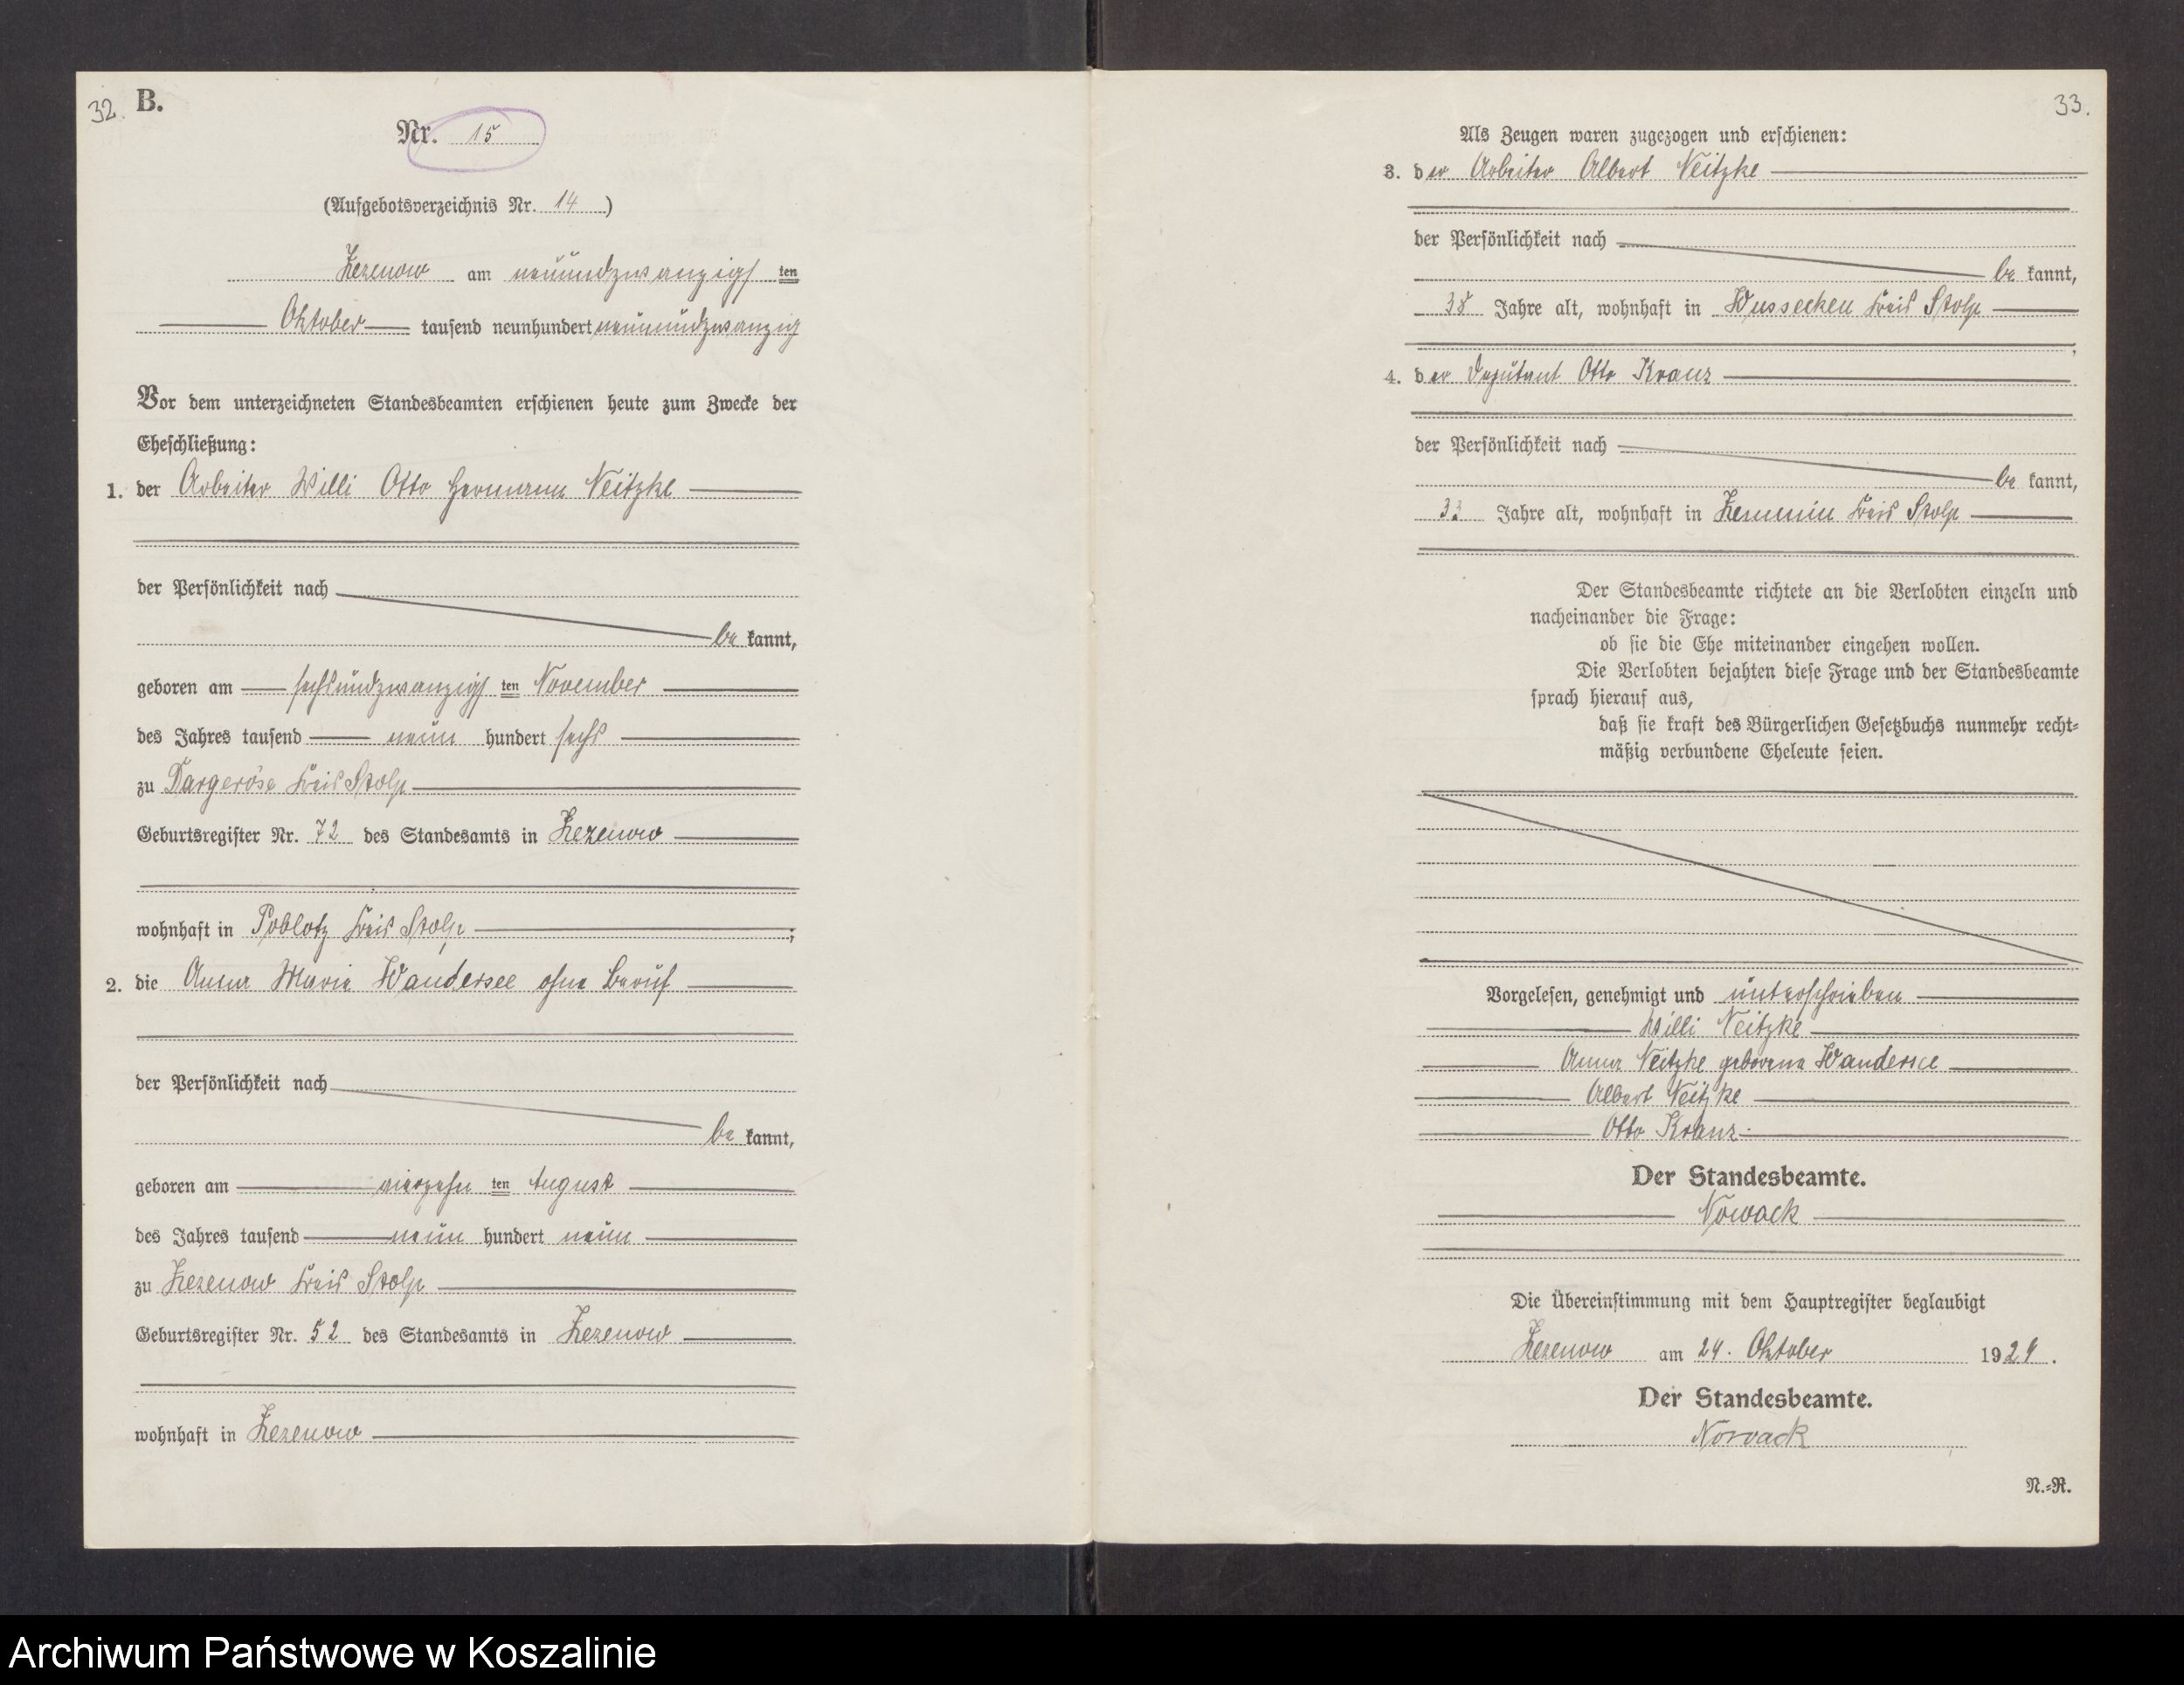 32.
B.
Nr. 15
(Aufgebotsverzeichnis Nr. 14)
Zezenow am neunundzwanzigsten
Oktober tausend neunhundert neunundzwanzig
Vor dem unterzeichneten Standesbeamten erschienen heute zum Zwecke der
Eheschließung:
1. der Arbeiter Willi Otto Hermann Neitzke
der Persönlichkeit nach
be kannt,
geboren am sechsundzwanzigsten November
des Jahres tausend neun hundert sechs
zu Dargeröse Kreis Stolp
Geburtsregister Nr. 72 des Standesamts in Zezenow
wohnhaft in Poblotz Kreis Stolp ;
2. die Anna Marie Wandersee ohne Beruf
der Persönlichkeit nach
be kannt,
geboren am vierzehnten August
des Jahres tausend neun hundert neun
zu Zezenow Kreis Stolp
Geburtsregister Nr. 52 des Standesamts in Zezenow
wohnhaft in Zezenow
33.
Als Zeugen waren zugezogen und erschienen:
3. der Arbeiter Albert Neitzke
der Persönlichkeit nach
be kannt,
38 Jahre alt, wohnhaft in Wussecken Kreis Stolp
;
4. der Deputant Otto Kranz
der Persönlichkeit nach
be kannt,
33 Jahre alt, wohnhaft in Zemmin Kreis Stolp
Der Standesbeamte richtete an die Verlobten einzeln und
nacheinander die Frage:
ob sie die Ehe miteinander eingehen wollen.
Die Verlobten bejahten diese Frage und der Standesbeamte
sprach hierauf aus,
daß sie kraft des Bürgerlichen Gesetzbuchs nunmehr recht-
mäßig verbundene Eheleute seien.
Vorgelesen, genehmigt und unterschrieben
Willi Neitzke
Anna Neitzke geborene Wandersee
Albert Neitzke
Otto Kranz.
Der Standesbeamte.
Nowack
Die Übereinstimmung mit dem Hauptregister beglaubigt
Zezenow am 29. Oktober 1929.
Der Standesbeamte.
Nowack
N.-R.
Archiwum Państwowe w Koszalinie